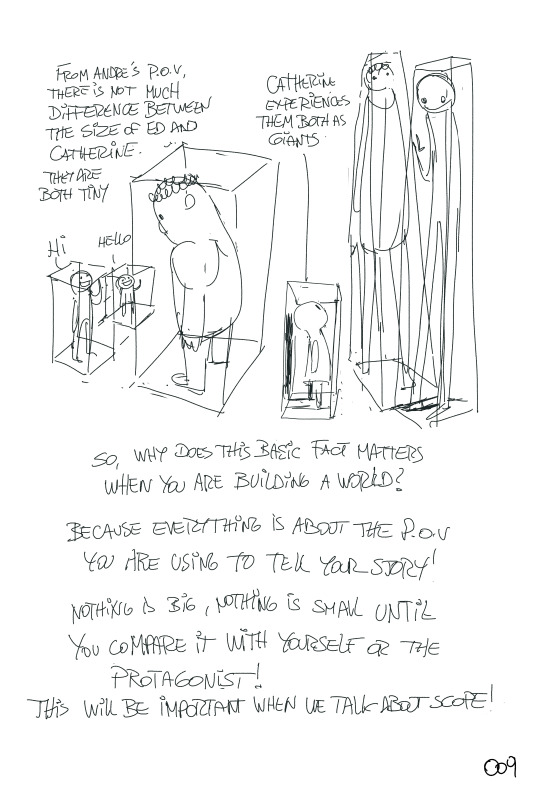 FROM ANDRE'S P.O.V,
THERE IS NOT MUCH
DIFFERENCE BETWEEN
THE SIZE OF ED AND
CATHERINE.
THEY ARE
BOTH TINY
CATHERINE
EXPERIENCES
THEM BOTH AS
GIANTS
Hi
HELLO
SO, WHY DOES THIS BASIC FACT MATTERS
WHEN YOU ARE BUILDING A WORLD?
BECAUSE EVERYTHING IS ABOUT THE P.O.V
YOU ARE USING TO TELL YOUR STORY!
NOTHING IS BIG, NOTHING IS SMALL UNTIL
YOU COMPARE IT WITH YOURSELF OR THE
PROTAGONIST!
THIS WILL BE IMPORTANT WHEN WE TALK ABOUT SCOPE!
009